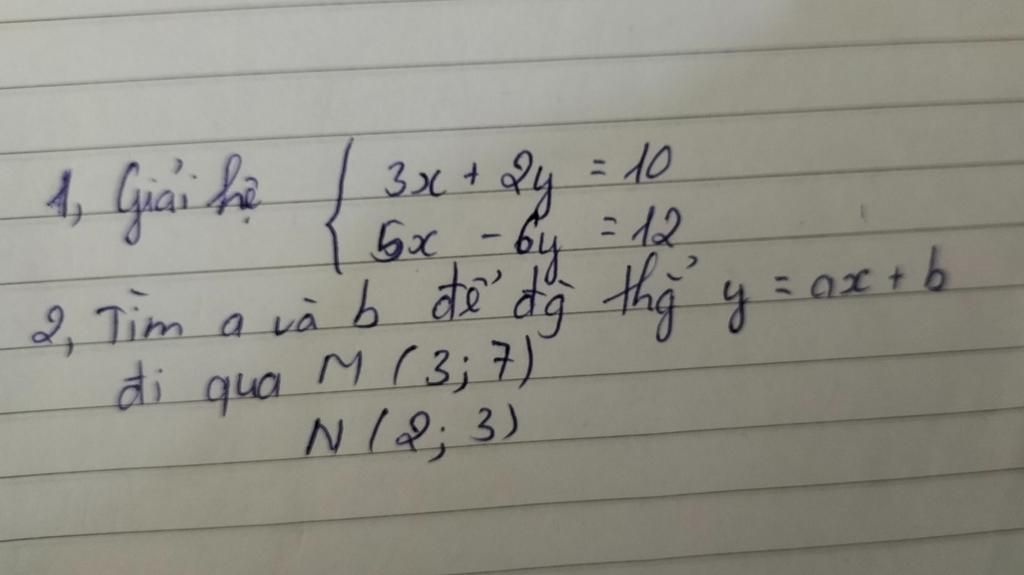 1, Giải hệ { 3x + 2y = 10
5x - 6y = 12
2, Tìm a và b để đg thg y = ax + b
đi qua M (3; 7)
N (2; 3)